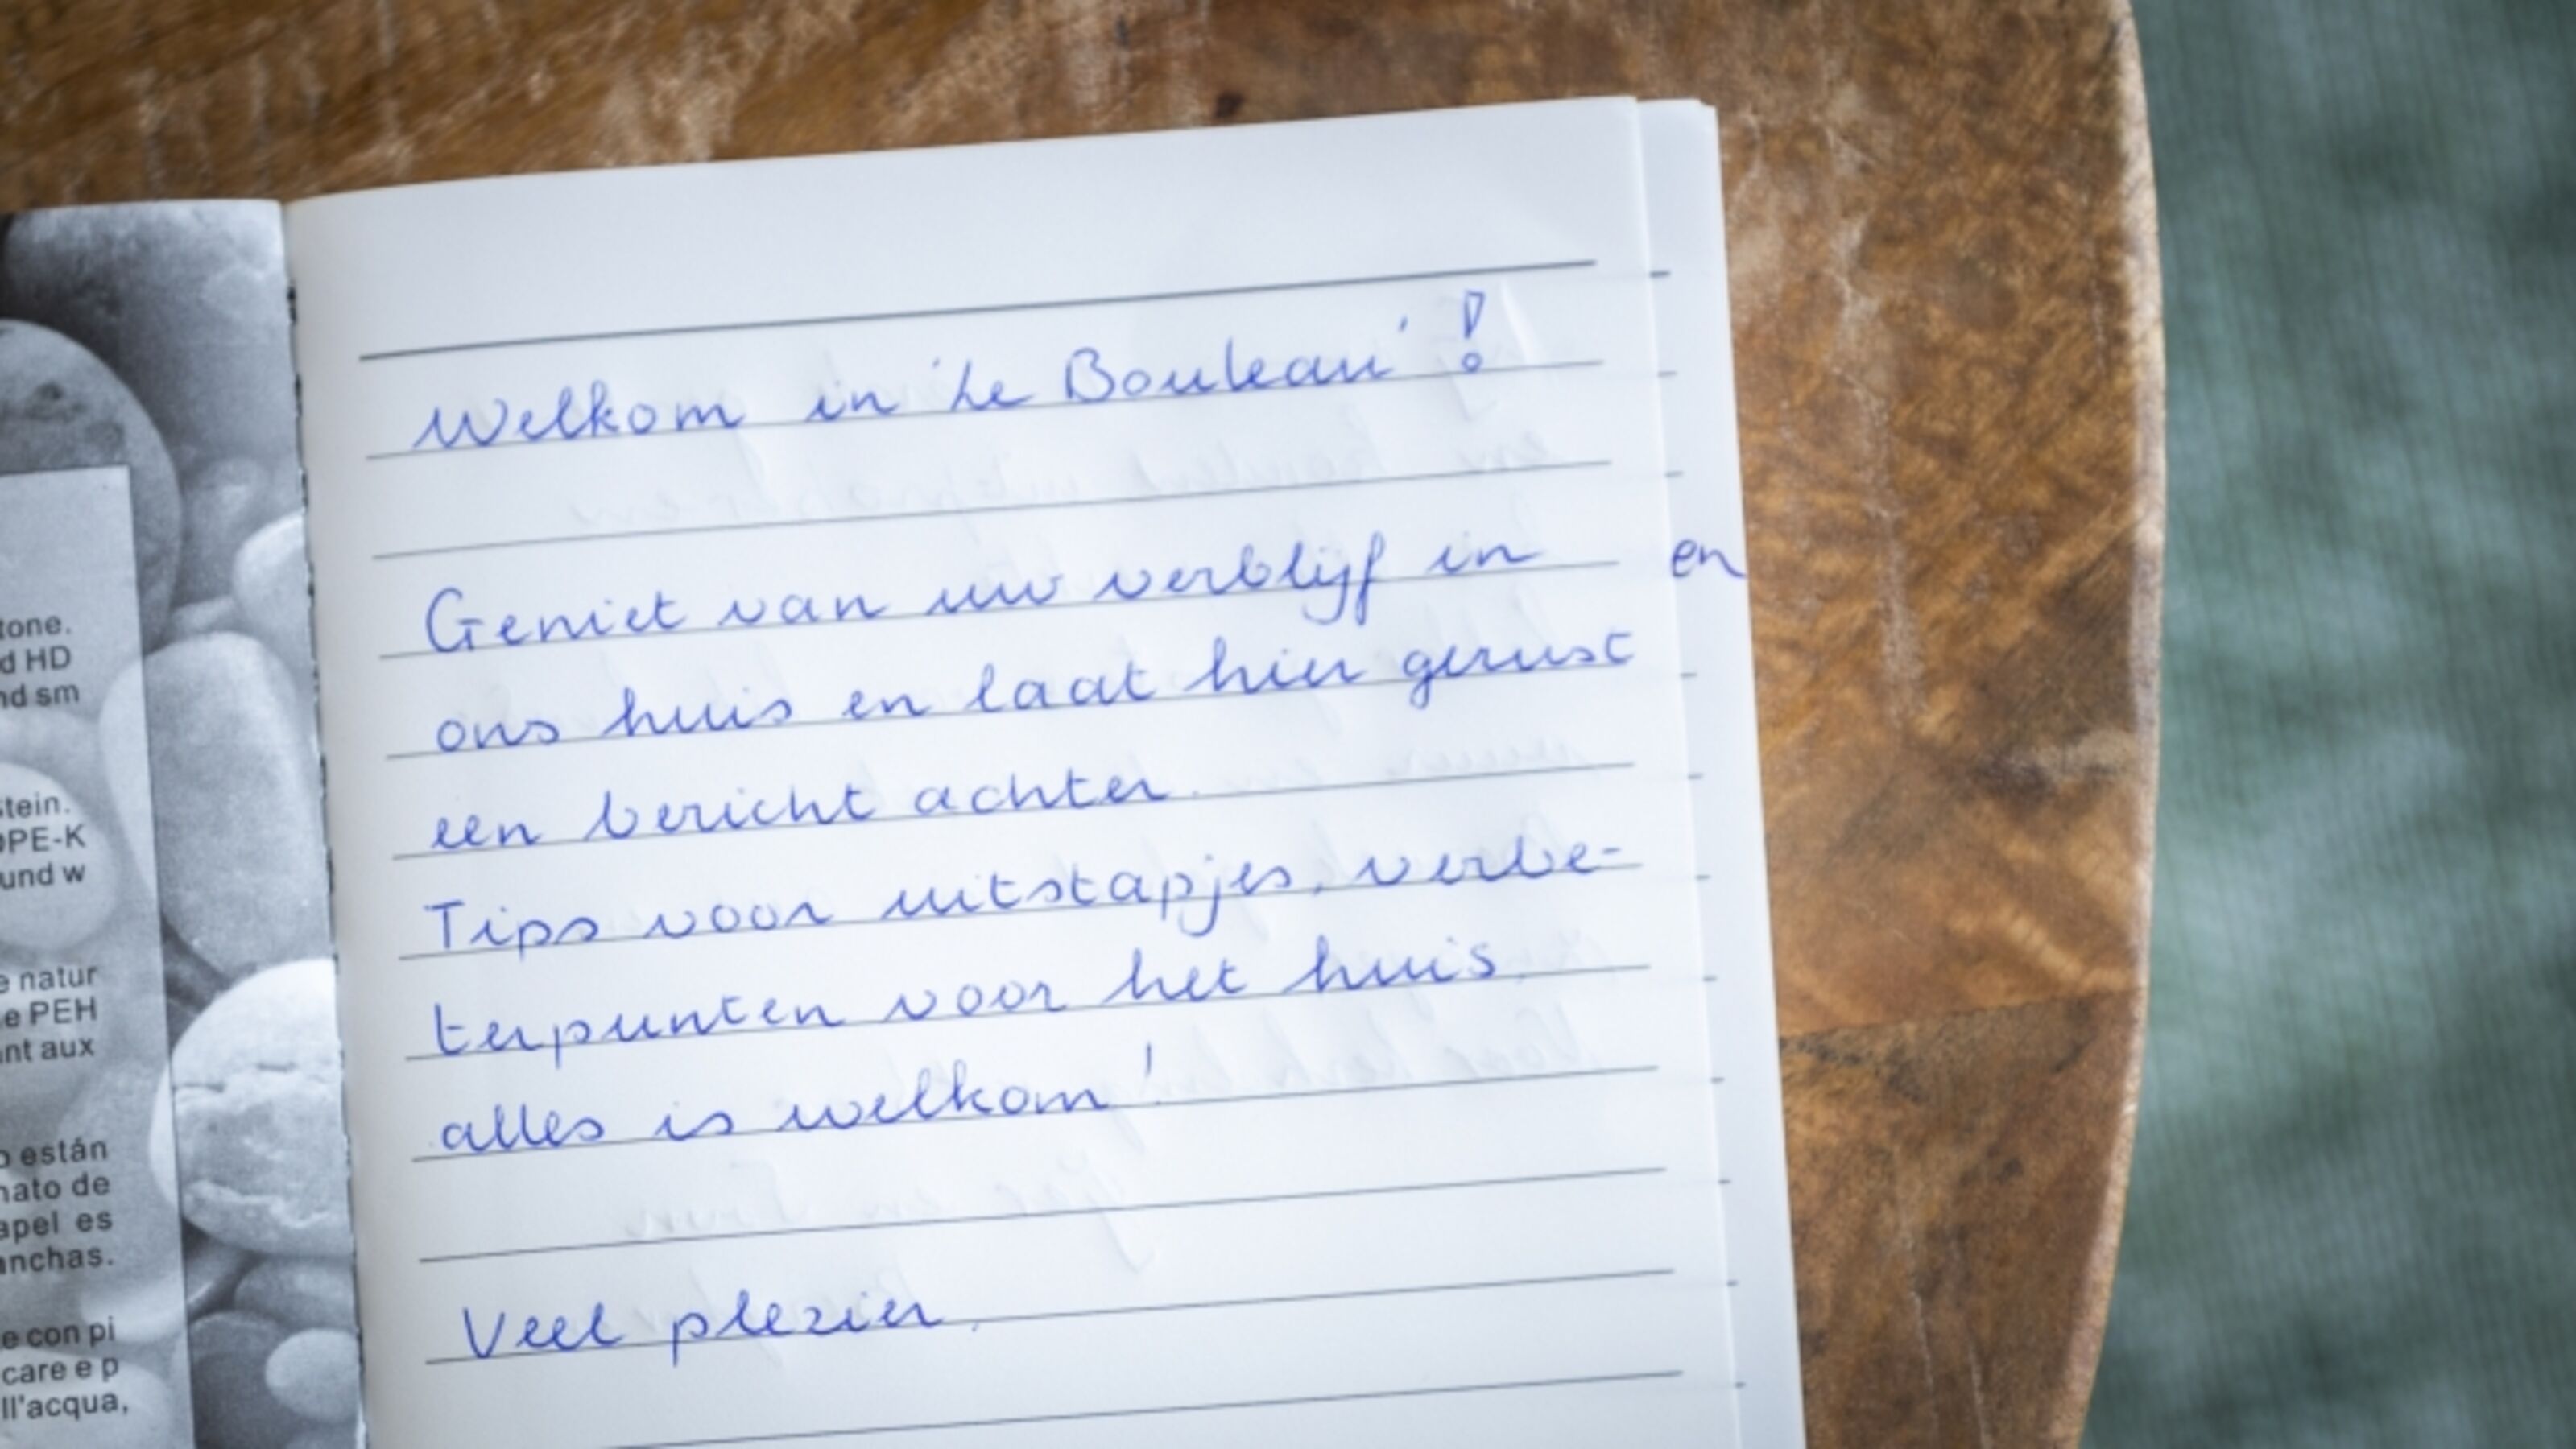 tone.
d HD
nd sm
stein.
OPE-K
und w
e natur
e PEH
ant aux
o están
mato de
apel es
anchas.
e con pi
care e p
ll'acqua,
Welkom in 'Le Bouleau' !
Geniet van uw verblijf in
ons huis en laat hier gerust
een bericht achter.
Tips voor uitstapjes, verbe-
terpunten voor het huis,
alles is welkom!
Veel plezier.
en